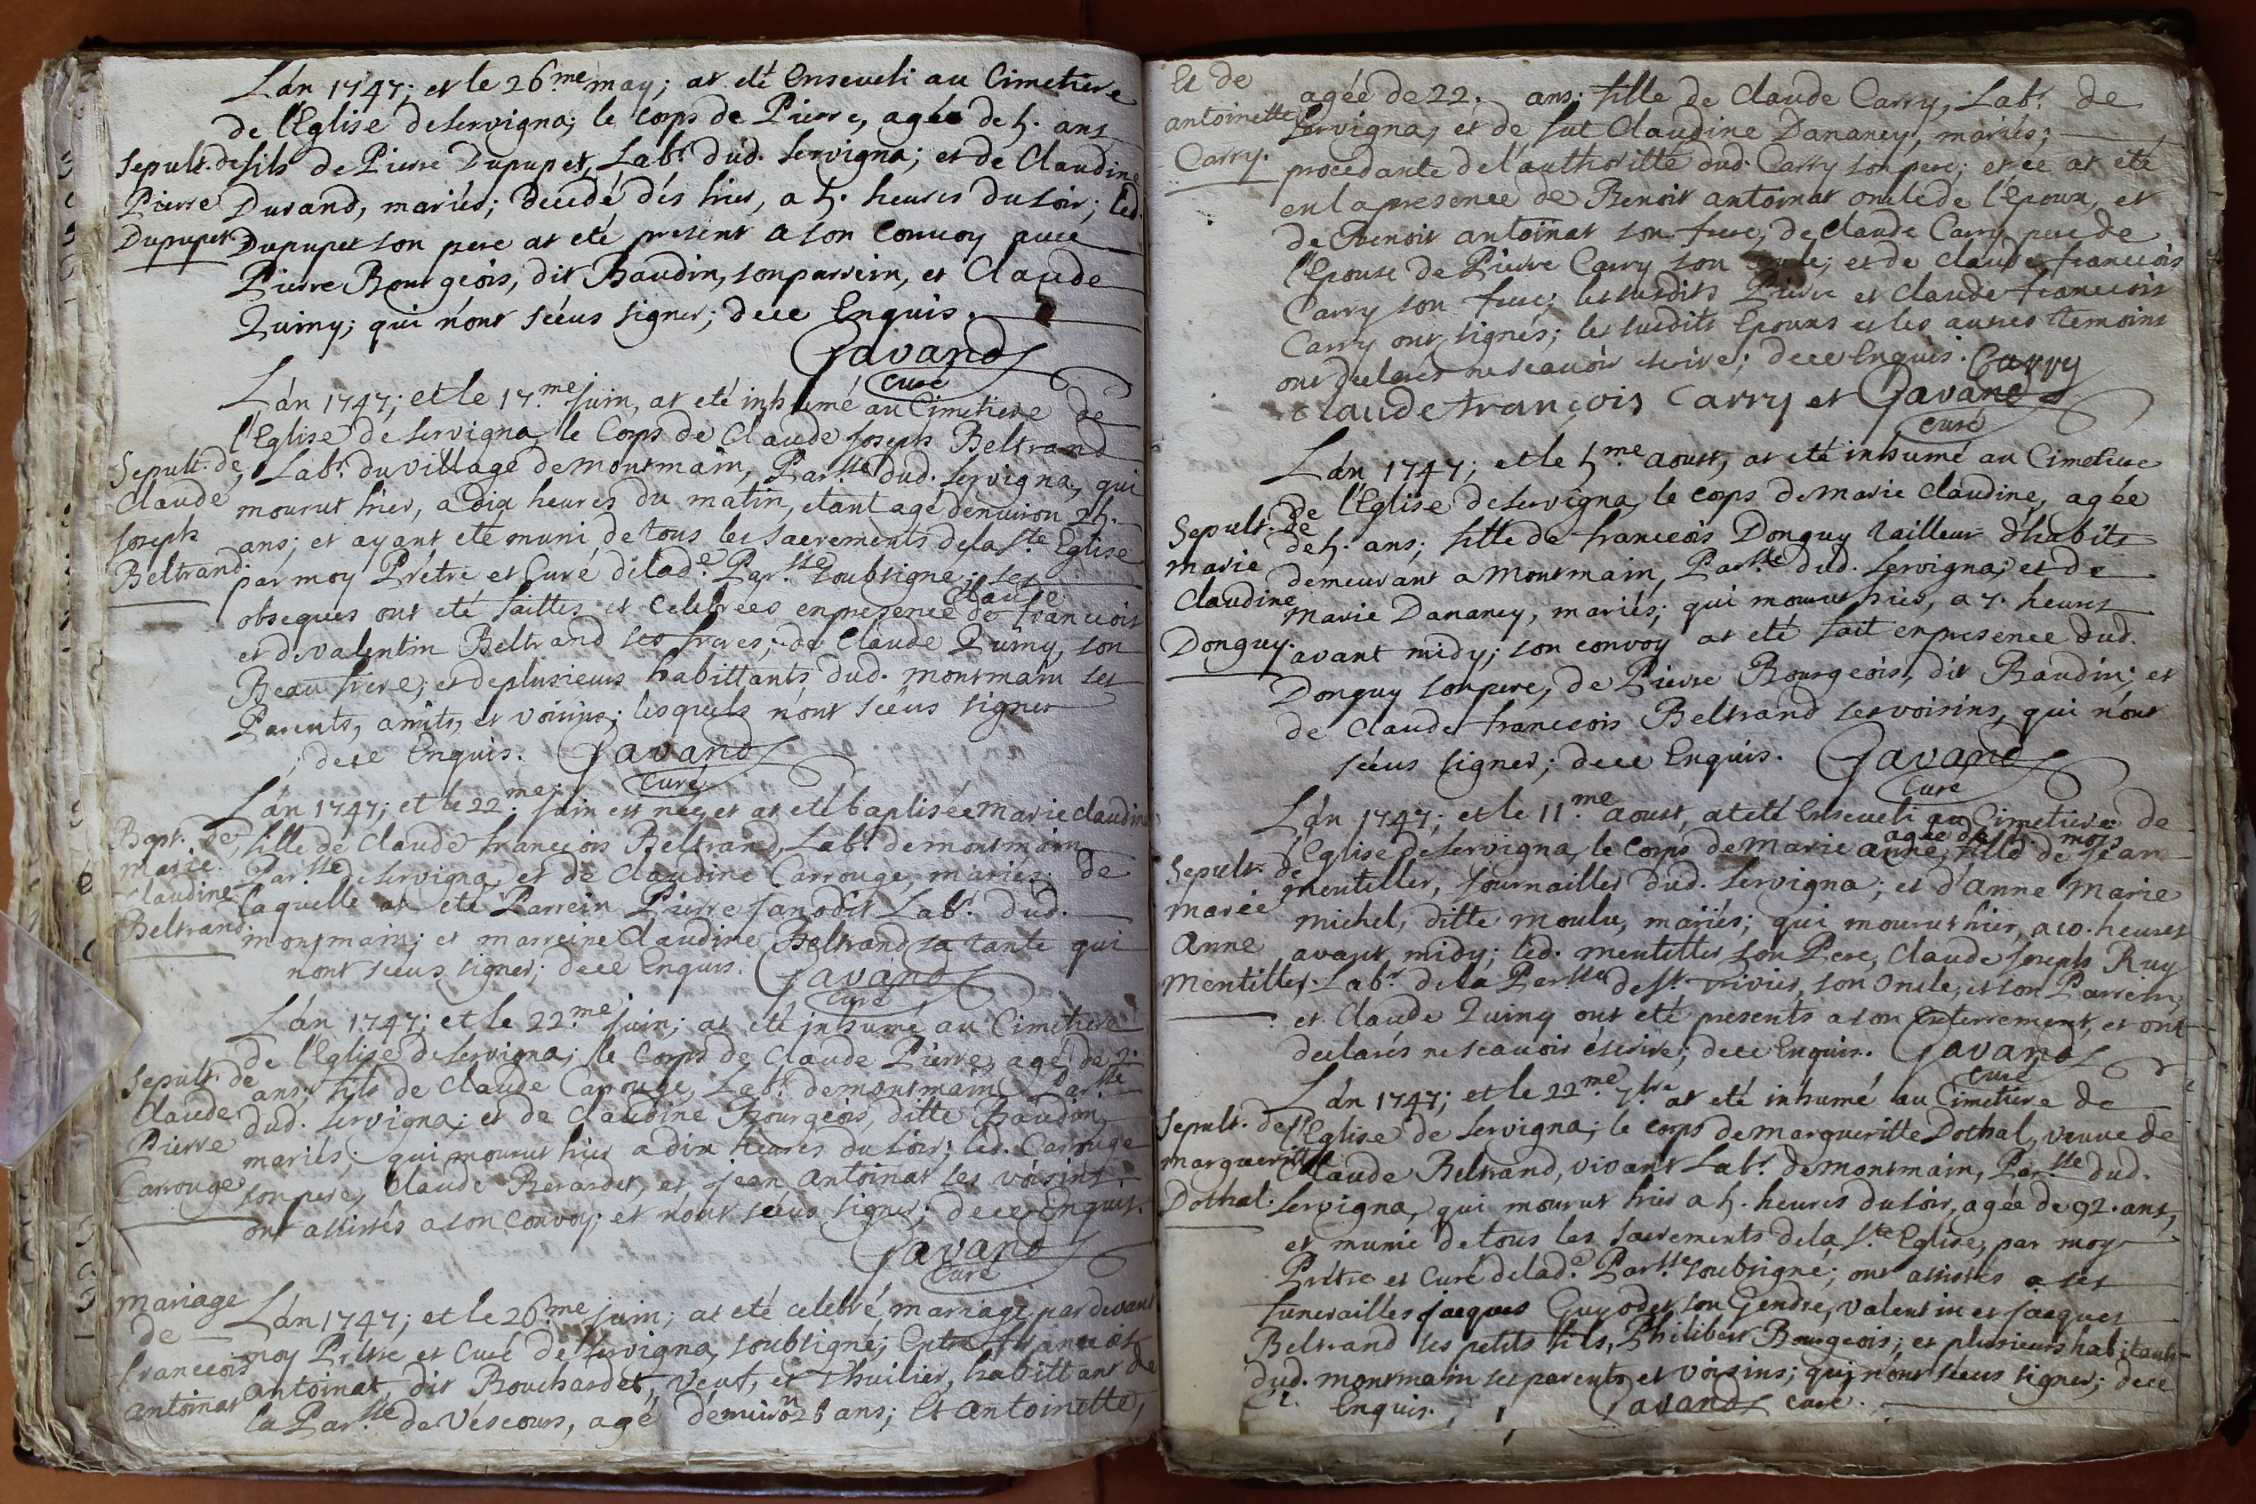 L'án 1747; et le 26.me may; at eté Enseveli au Cimetiere
de l'Eglise de servigna; le corps de Pierre, agée de 5. ans
Sepult. de
Pierre
Dupupet
fils de Pierre Dupupet, Labr. dud. servigna; et de Claudine
Durand, mariés; decedé dés hier, a 5. heures du soir; led.
Dupupet son pere at eté present a son Convoy avec
Pierre Bourgeois, dit Baudin, son parrein, et Claude
Quiny; qui n'ont sceus signer; de ce Enquis.
Gavand
curé
L'án 1747; et le 17.me Juin, at eté inhumé au Cimetiere de
l'Eglise de servigna, le Corps de Claude Joseph Beltrand
Sepult. de
Claude
Joseph
Beltrand.
Labr. du village de montmain, Par.sse dud. servigna, qui
mourut hier, a dix heures du matin, etant agé d'enuiron 25.
ans; et ayant eté muni de tous les sacrements de la S.te Eglise
par moy Prétre et Curé de lad.e Par.sse soubsigné; ses
obseques ont eté faittes et Celebrées en presence de francois
claude
et de valentin Beltrand ses freres; de Claude Quiny, son
Beau frere; et de plusieurs habittants dud. montmain ses
Parents, amits, et voisins; lesquels n'ont sceus signer
; de ce Enquis. Gavand
Curé
L'án 1747; et le 22.me Juin est néz et at eté baptisée marie claudine
Bapt. de
marie
claudine
Beltrand.
fille de Claude francois Beltrand, Labr. de montmain
Par.sse de servigna, et de Claudine Carrouge, mariés; de
laquelle at eté Parrein Pierre Janodit Labr. dud.
montmain; et marreine Claudine Beltrand sa tante qui
n'ont sceus signer; de ce Enquis. Gavand
curé
L'án 1747; et le 22.me Juin; at eté inhumé au Cimetiere
de l'Eglise de servigna; le Corps de Claude Pierre, agé de 2.
Sepult. de
Claude
Pierre
Carrouge
ans; fils de Claude Carrouge, Labr. de montmain Par.sse
dud. servigna; et de Claudine Bourgeois, ditte Baudon,
mariés; qui mourut hier a dix heures du soir; led. Carrouge
son pere, Claude Berardet, et jean antoinat ses voisins
ont assistés a son convoy; et n'ont sceus signer; de ce Enquis.
Gavand
Curé
mariage
de
francois
antoinat
L'án 1747; et le 26.me Juin; at eté celebré, mariage par devant
moy Prétre et Curé de servigna, soubsigné; Entre francois
antoinat, dit Bouchardet, veuf, et thuilier, habittant de
la Par.sse de véscours, agé d'enuiron 28 ans; Et antoinette,
Et de
antoinette
Carry.
agée de 22. ans. fille de Claude Carry, Labr. de
servigna, et de fut Claudine Dananey, mariés;
procedante de l'authoritté dud. Carry son pere; et ce at eté
en la presence de Benoit antoinat oncle de l'Epoux, et
de Benoit antoinat son frere; de Claude Carry pere de
l'Epouse de Pierre Carry son oncle; et de claude francois
Carry son frere; les susdits Pierre et Claude francois
Carry ont signés; les susdits Epoux et les autres temoins
ont declarés ne scauoir escrire; de ce Enquis. Carry
claude françois Carry et Gavand
curé
L'án 1747; et le 5.me aoust, at eté inhumé au Cimetiere
de l'Eglise de servigna, le corps de marie claudine, agée
Sepult. de
marie
Claudine
Donguy.
de 5. ans; fille de francois Donguy tailleur d'habits
demeurant a montmain, Par.sse dud. servigna; et de
marie Dananey, mariés; qui mourut hier, a 7. heures
avant midy; son convoy at eté fait en presence dud.
Donguy son pere, de Pierre Bourgeois, dit Baudin; et
de Claude francois Beltrand ses voisins, qui n'ont
sceus signer; de ce Enquis. Gavand
Curé
L'án 1747; et le 11.me aoust, at eté Enseveli au Cimetiere de
l'Eglise de servigna, le Corps de marie anne, fille de Jean
agée de mois
Sepult. de
marie
Anne
mentiller.
mentiller, journallier dud. servigna; et d'anne marie
michel, ditte moulu, mariés; qui mourut hier, a 10. heures
avant midy; led. mentiller son Pere, Claude Joseph Ruy
Labr. de la Par.sse de St. trivier, son oncle, et son Parrein,
et Claude Quiny ont eté presents a son Enterrement, et ont
declarés ne scauoir éscrire; de ce Enquis. Gavand
Curé
L'án 1747; et le 22.me 7.bre at eté inhumé au Cimetiere de
Sepult. de
margueritte
Dothal.
l'Eglise de servigna; le corps de margueritte Dothal, veuve de
Claude Beltrand, vivant Labr. de montmain, Par.sse dud.
servigna, qui mourut hier a 5. heures du soir, agée de 92. ans,
et munie de tous les sacrements de la S.te Eglise, par moy
Prétre et Curé de lad.e Par.sse soubsigné; ont assistés a ses
funerailles jacques Guyodet, son Gendre, valentin et jacques
Beltrand ses petits fils, Philibert Bourgeois; et plusieurs habitants
dud. montmain ses parents et voisins; qui n'ont sceus signer; de ce
Enquis. Gavand curé.